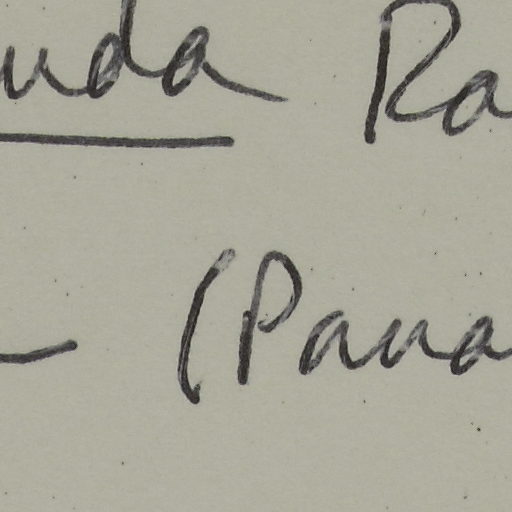 uda Ra
(Pana